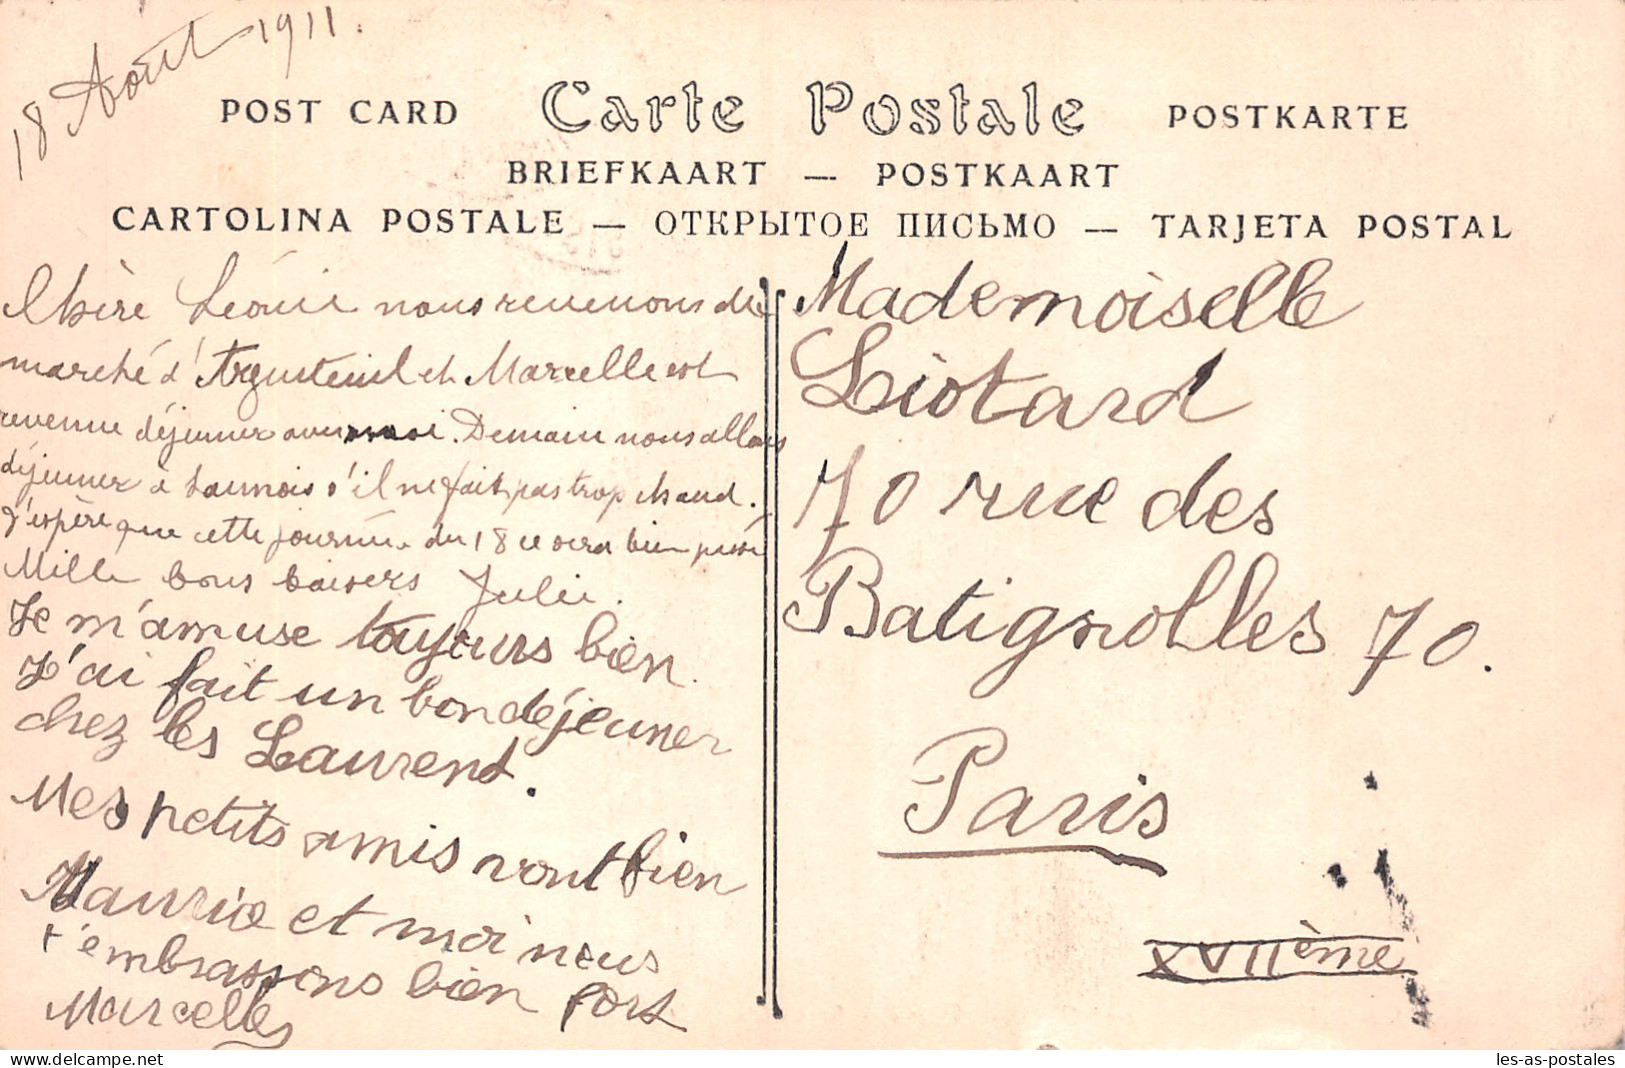 18 Août 1911.
POST CARD Carte Postale POSTKARTE
BRIEFKAART — POSTKAART
CARTOLINA POSTALE — ОТКРЫТОЕ ПИСЬМО — TARJETA POSTAL
Chère Léonie nous revenons du
marché d'Argenteuil et Marcelle est
revenue déjeuner avec moi. Demain nous allons
déjeuner à s'il ne fait pas trop chaud.
J'espère que cette journée du 18 se sera bien passé
Mille bons baisers Julie.
Je m'amuse toujours bien
J'ai fait un bon déjeuner
chez les Laurent.
Mes petits amis vont bien
Maurice et moi nous
t'embrassons bien fort
Marcelle
Mademoiselle
Liotard
70 rue des
Batignolles 70.
Paris
XVIIème
les-as-postales